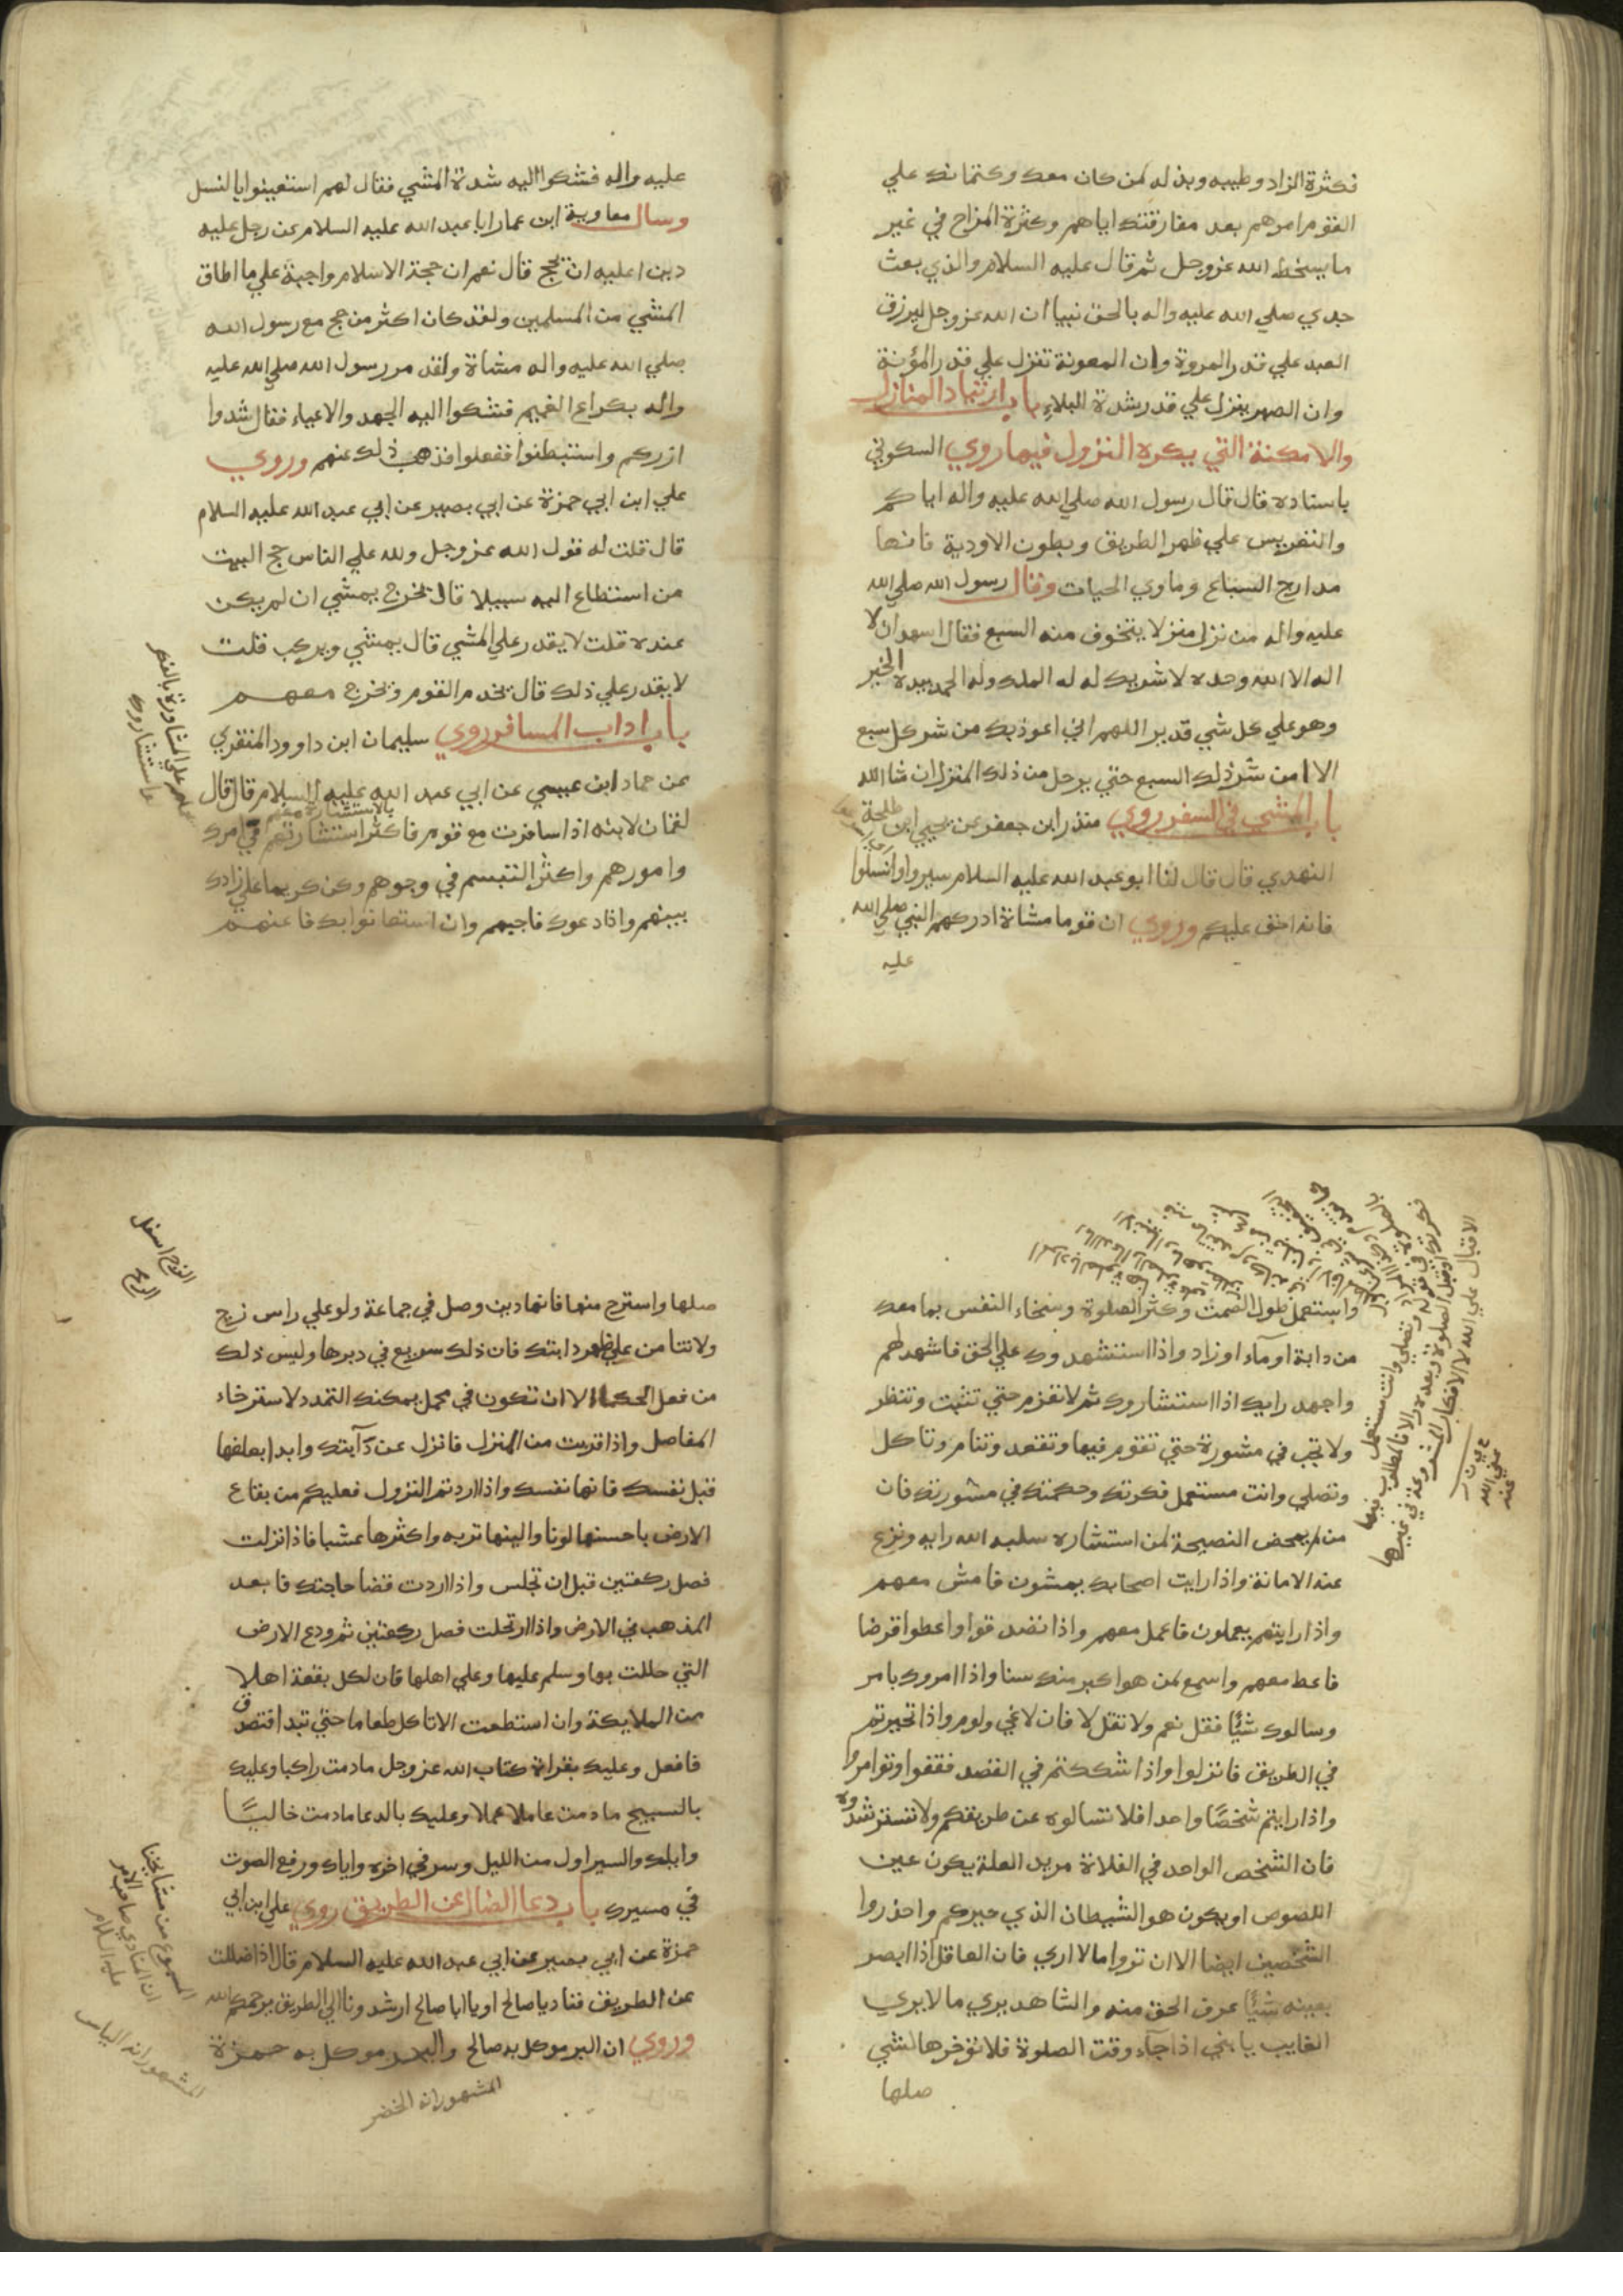 فكثرة الزاد وطيبه وبذله لمن كان معك وكتمانك علي
القوم امرهم بعد مفارقتك اياهم وكثرة المزاح في غير
ما يسخط الله عزوجل ثم قال عليه السلام والذي بعث
جدي صلي الله عليه واله بالحق نبيا ان الله عزوجل ليرزق
العبد علي قدر المروة وان المعونة تنزل علي قدر المؤنة
وان الصبر ينزل علي قدر شدة البلاء باب ارتياد المنازل
والامكنة التي يكره النزول فيها روي السكوني
باسناده قال قال رسول الله صلي الله عليه واله اياكم
والتعريس علي ظهر الطريق وبطون الاودية فانها
مدارج السباع وماوي الحيات وقال رسول الله صلي الله
عليه واله من نزل منزلا يتخوف منه السبع فقال اشهد ان لا
اله الا الله وحده لا شريك له له الملك وله الحمد بيده الخير
وهو علي كل شي قدير اللهم اني اعوذ بك من شر كل سبع
الا امن شر ذلك السبع حتي يرحل من ذلك المنزل ان شا الله
باب المشي في السفر روي منذر ابن جعفر عن يحيي ابن طلحة
النهدي قال قال لنا ابو عبد الله عليه السلام سيروا وانسلوا
فانه اخف عليكم وروي ان قوما مشاة ادركهم النبي صلي الله
عليه
عليه واله فشكوا اليه شدة المشي فقال لهم استعينوا بالنسل
وسال معاوية ابن عمار ابا عبد الله عليه السلام عن رجل عليه
دين اعليه ان يحج قال نعم ان حجة الاسلام واجبة علي ما اطاق
المشي من المسلمين ولقد كان اكثر من حج مع رسول الله
صلي الله عليه واله مشاة ولقد مر رسول الله صلي الله عليه
واله بكراع الغميم فشكوا اليه الجهد والاعياء فقال شدوا
ازركم واستبطنوا ففعلوا فذهب ذلك عنهم وروي
علي ابن ابي حمزة عن ابي بصير عن ابي عبد الله عليه السلام
قال قلت له قول الله عزوجل ولله علي الناس حج البيت
من استطاع اليه سبيلا قال يخرج يمشي ان لم يكن
عنده قلت لا يقدر علي المشي قال يمشي ويركب قلت
لا يقدر علي ذلك قال يخدم القوم ويخرج معهم
باب اداب المسافر روي سليمان ابن داوود المنقري
عن حماد ابن عيسي عن ابي عبد الله عليه السلام قال قال
لقمان لابنه اذا سافرت مع قوم فاكثر استشارتهم في امرك
وامورهم واكثر التبسم في وجوههم وكن كريما علي زادك
بينهم واذا دعوك فاجبهم وان استعانوا بك فاعنهم
واستعمل طول الصمت وكثر الصلوة وسخاء النفس بما معك
من دابة او ماء او زاد واذا استشهدوك علي الحق فاشهد لهم
واجهد رايك اذا استشاروك ثم لا تعزم حتي تثبت وتنظر
ولا تجب في مشورة حتي تقوم فيها وتقعد وتنام وتاكل
وتصلي وانت مستعمل فكرتك وحكمتك في مشورتك فان
من لم يمحض النصيحة لمن استشاره سلبه الله رايه ونزع
عنه الامانة واذا رايت اصحابك يمشون فامش معهم
واذا رايتهم يعملون فاعمل معهم واذا تصدقوا واعطوا قرضا
فاعط معهم واسمع لمن هو اكبر منك سنا واذا امروك بامر
وسالوك شيئا فقل نعم ولا تقل لا فان لا غي ولوم واذا تحيرتم
في الطريق فانزلوا واذا شككتم في القصد فقفوا وتوامروا
واذا رايتم شخصا واحدا فلا تسالوه عن طريقكم ولا تسترشدوه
فان الشخص الواحد في الفلاة مريب العلة يكون عين
اللصوص او يكون هو الشيطان الذي حيركم واحذروا
الشخصين ايضا الا ان تروا ما لا اري فان العاقل اذا ابصر
بعينه شيئا عرف الحق منه والشاهد يري ما لا يري
الغايب يا بني اذا جاء وقت الصلوة فلا تؤخرها لشي
صلها
صلها واسترح منها فانها دين وصل في جماعة ولو علي راس زج
ولا تنامن علي ظهر دابتك فان ذلك سريع في دبرها وليس ذلك
من فعل الحكماء الا ان تكون في محمل يمكنك التمدد لاسترخاء
المفاصل واذا قربت من المنزل فانزل عن دآبتك وابدا بعلفها
قبل نفسك فانها نفسك واذا اردتم النزول فعليكم من بقاع
الارض باحسنها لونا والينها تربه واكثرها عشبا فاذا نزلت
فصل ركعتين قبل ان تجلس واذا اردت قضا حاجتك فابعد
المذهب في الارض واذا ارتحلت فصل ركعتين ثم ودع الارض
التي حللت بها وسلم عليها وعلي اهلها فان لكل بقعة اهلا
من الملايكة وان استطعت الا تاكل طعاما حتي تبدا فتصدق
فافعل وعليك بقراة كتاب الله عزوجل مادمت راكبا وعليك
بالتسبيح مادمت عاملا عملا وعليك بالدعا مادمت خاليًا
واياك والسير اول من الليل وسر في اخره واياك ورفع الصوت
في مسيرك باب دعا الضال عن الطريق روي علي ابن ابي
حمزة عن ابي بصير عن ابي عبد الله عليه السلام قال اذا ضللت
عن الطريق فناد يا صالح او يا ابا صالح ارشدونا الي الطريق يرحمكم الله
وروي ان البر موكل به صالح والبحر موكل به حمزة
المشهور انه الخضر
المشهور انه الياس